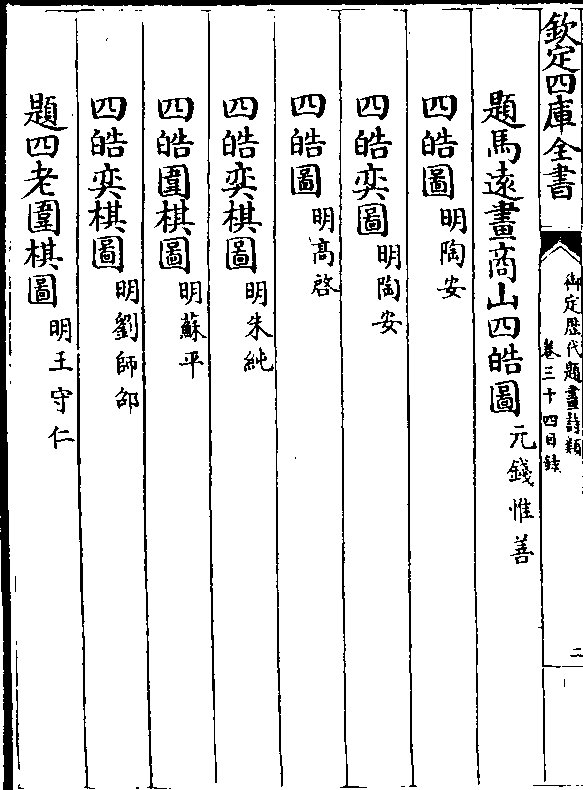 欽定四庫全書
御定歴代題畫詩類
卷三十四目錄
二
題馬遠畫商山四皓圖 元錢惟善
四皓圖 明陶安
四皓奕圖 明陶安
四皓圖 明高啓
四皓奕棋圖 明朱純
四皓圍棋圖 明蘇平
四皓奕棋圖 明劉師邵
題四老圍棋圖 明王守仁